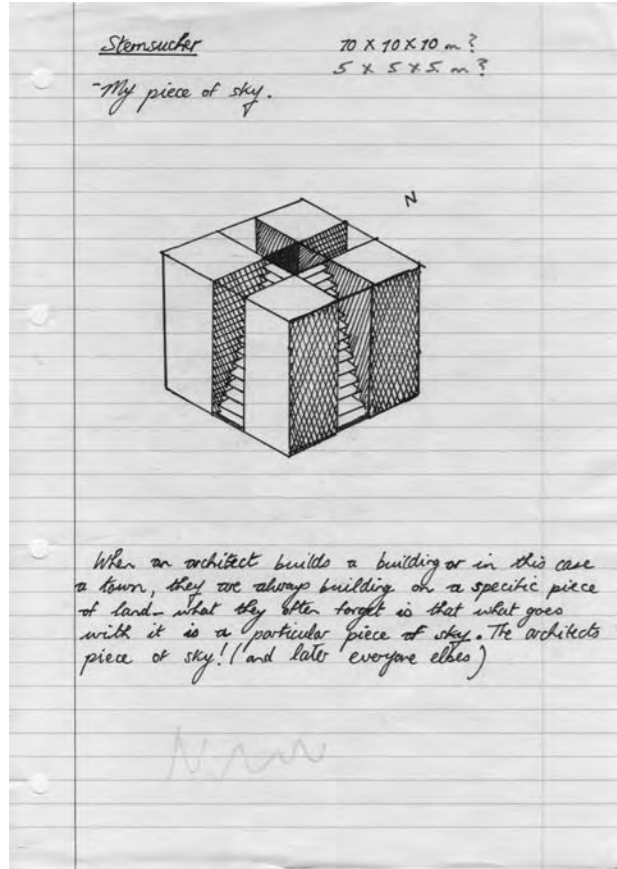 Sternsucher
10 x 10 x 10 m?
5 x 5 x 5 m?
-My piece of sky.
N
When an architect builds a building or in this case
a town, they are always building on a specific piece
of land - what they often forget is that what goes
with it is a particular piece of sky. The architects
piece of sky! (and later everyone elses)